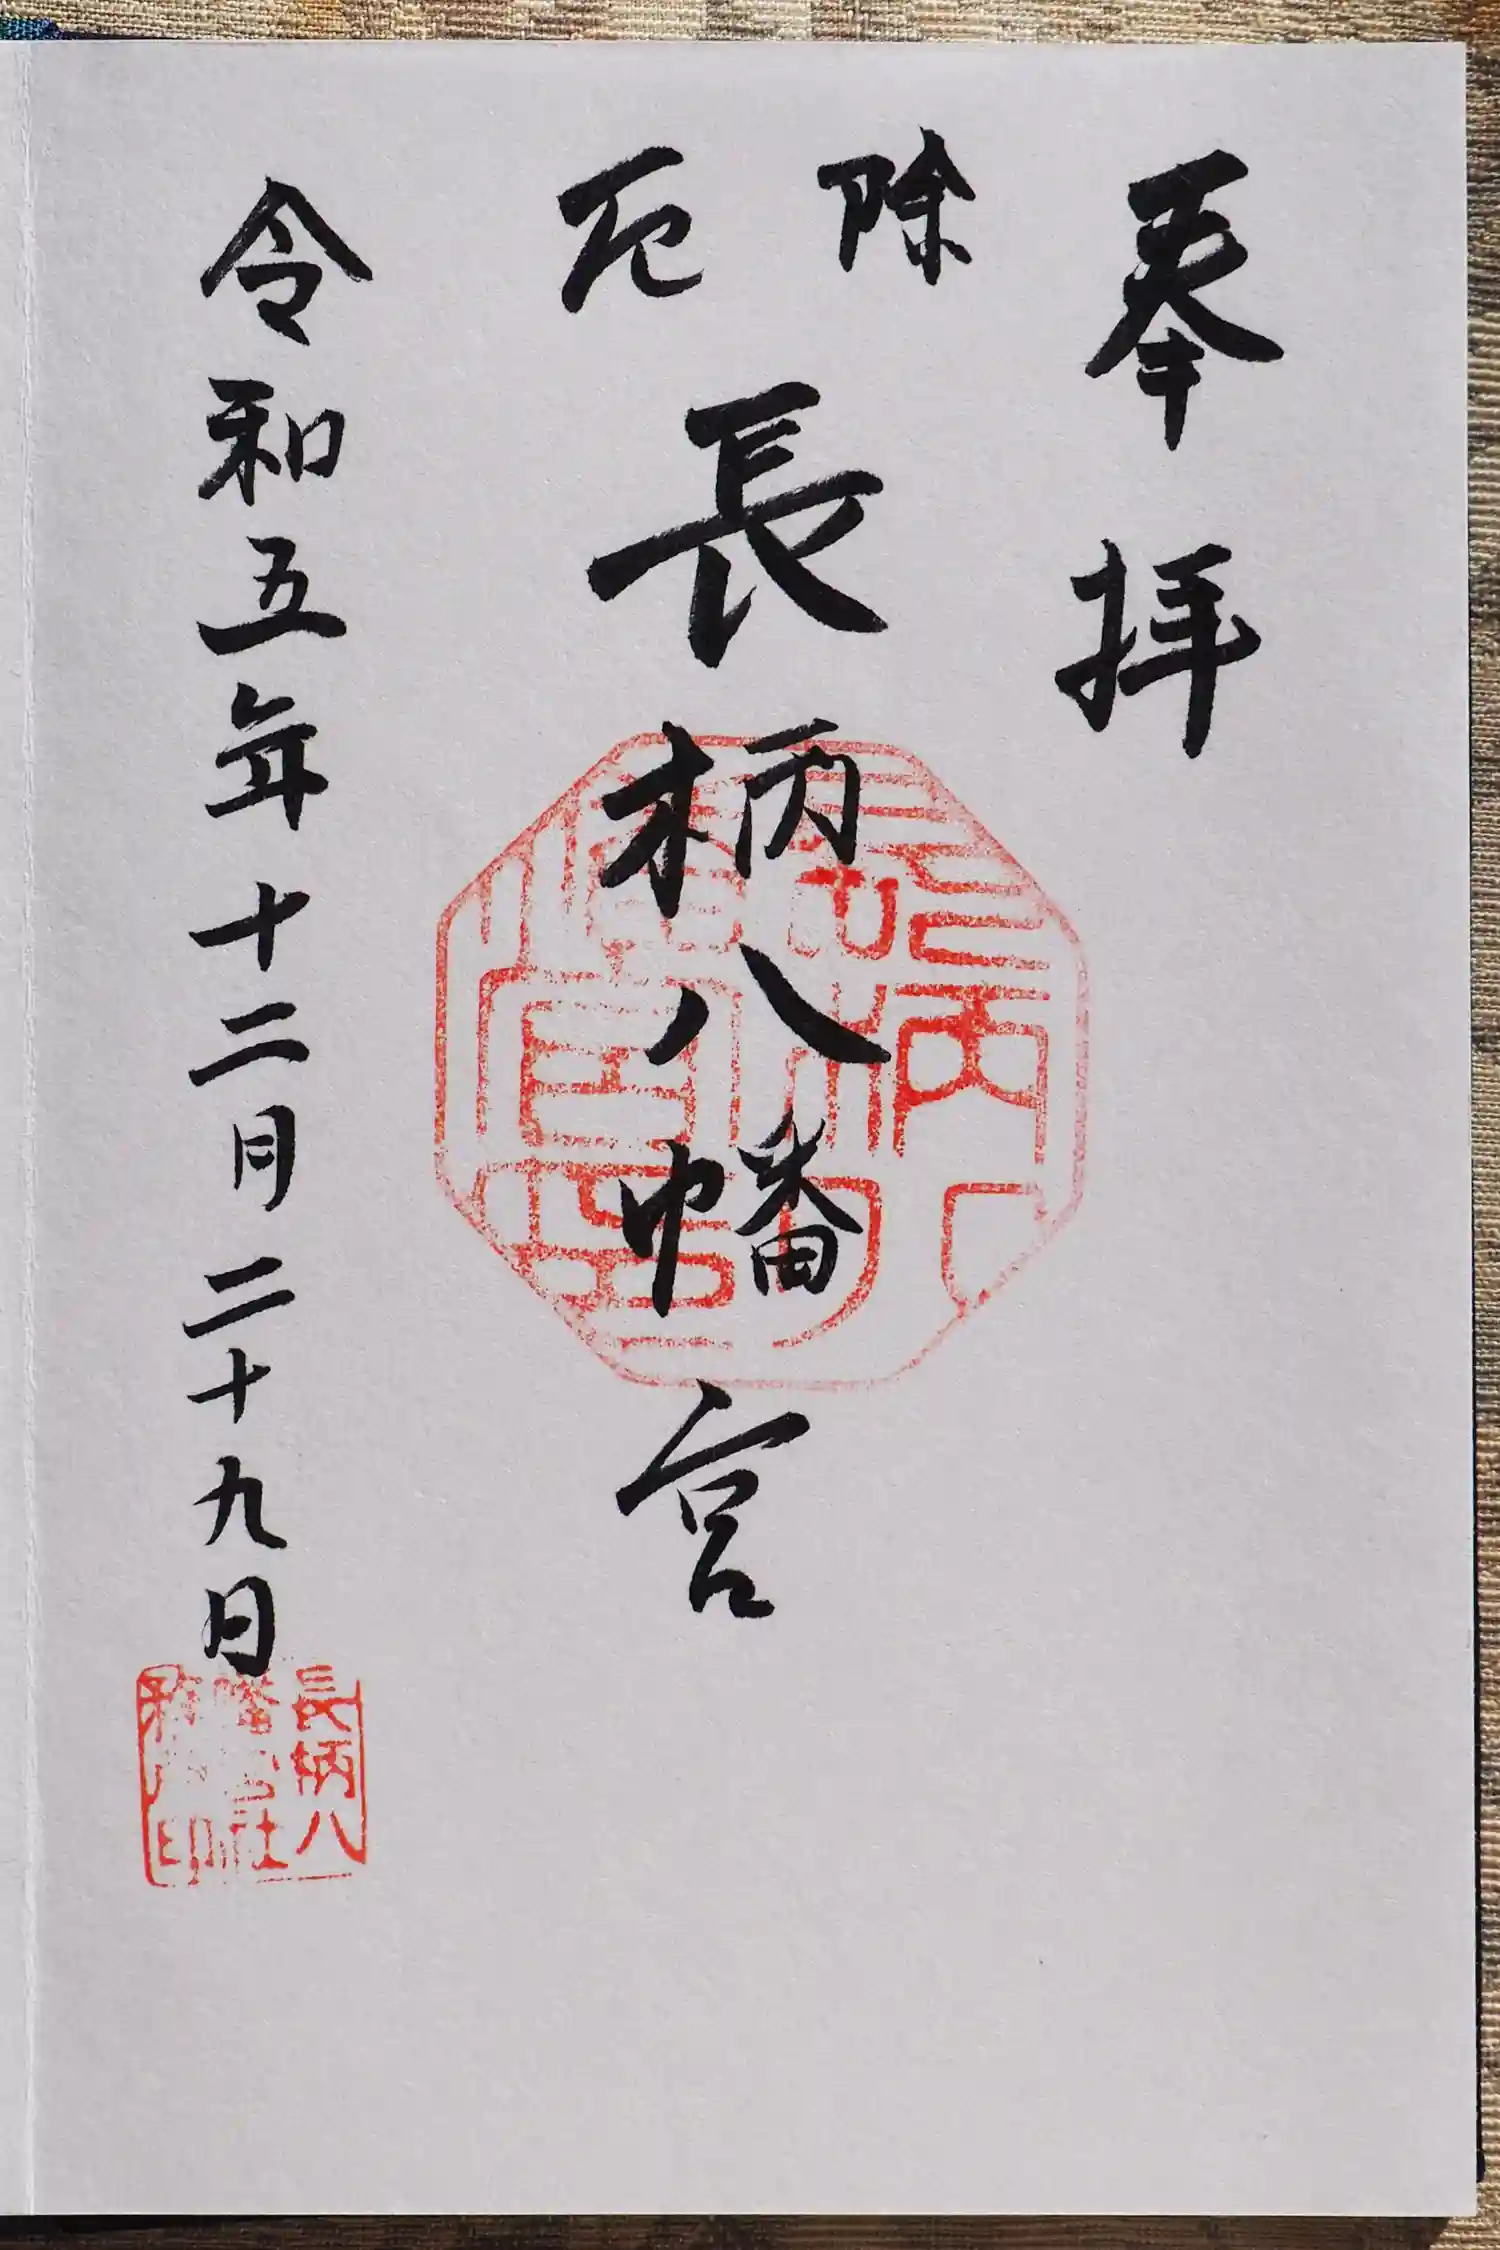 奉拝
除厄
長柄八幡宮
令和五年十二月二十九日
長柄八
幡宮社
務所印